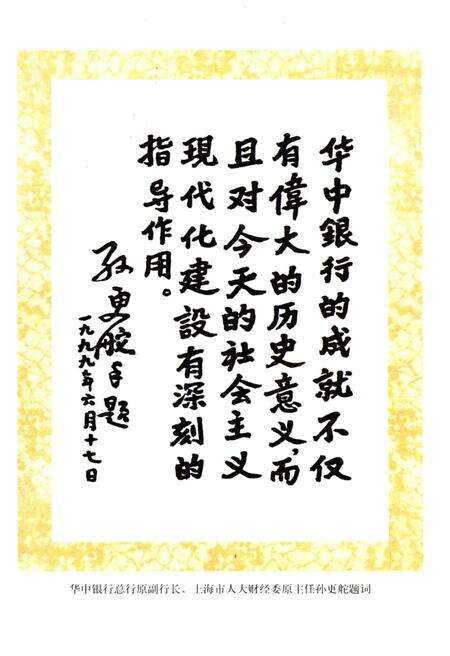 华中銀行的成就不仅
有偉大的历史意义,而
且对今天的社会主义
現代化建設有深刻的
指导作用。
孙更舵手題
一九九九年六月十七日
华中银行总行原副行长、上海市人大财经委原主任孙更舵题词